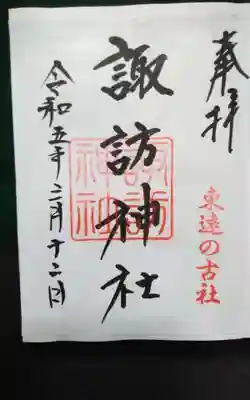 奉拝
東遠の古社
諏訪神社
諏訪神社
令和五年二月十六日